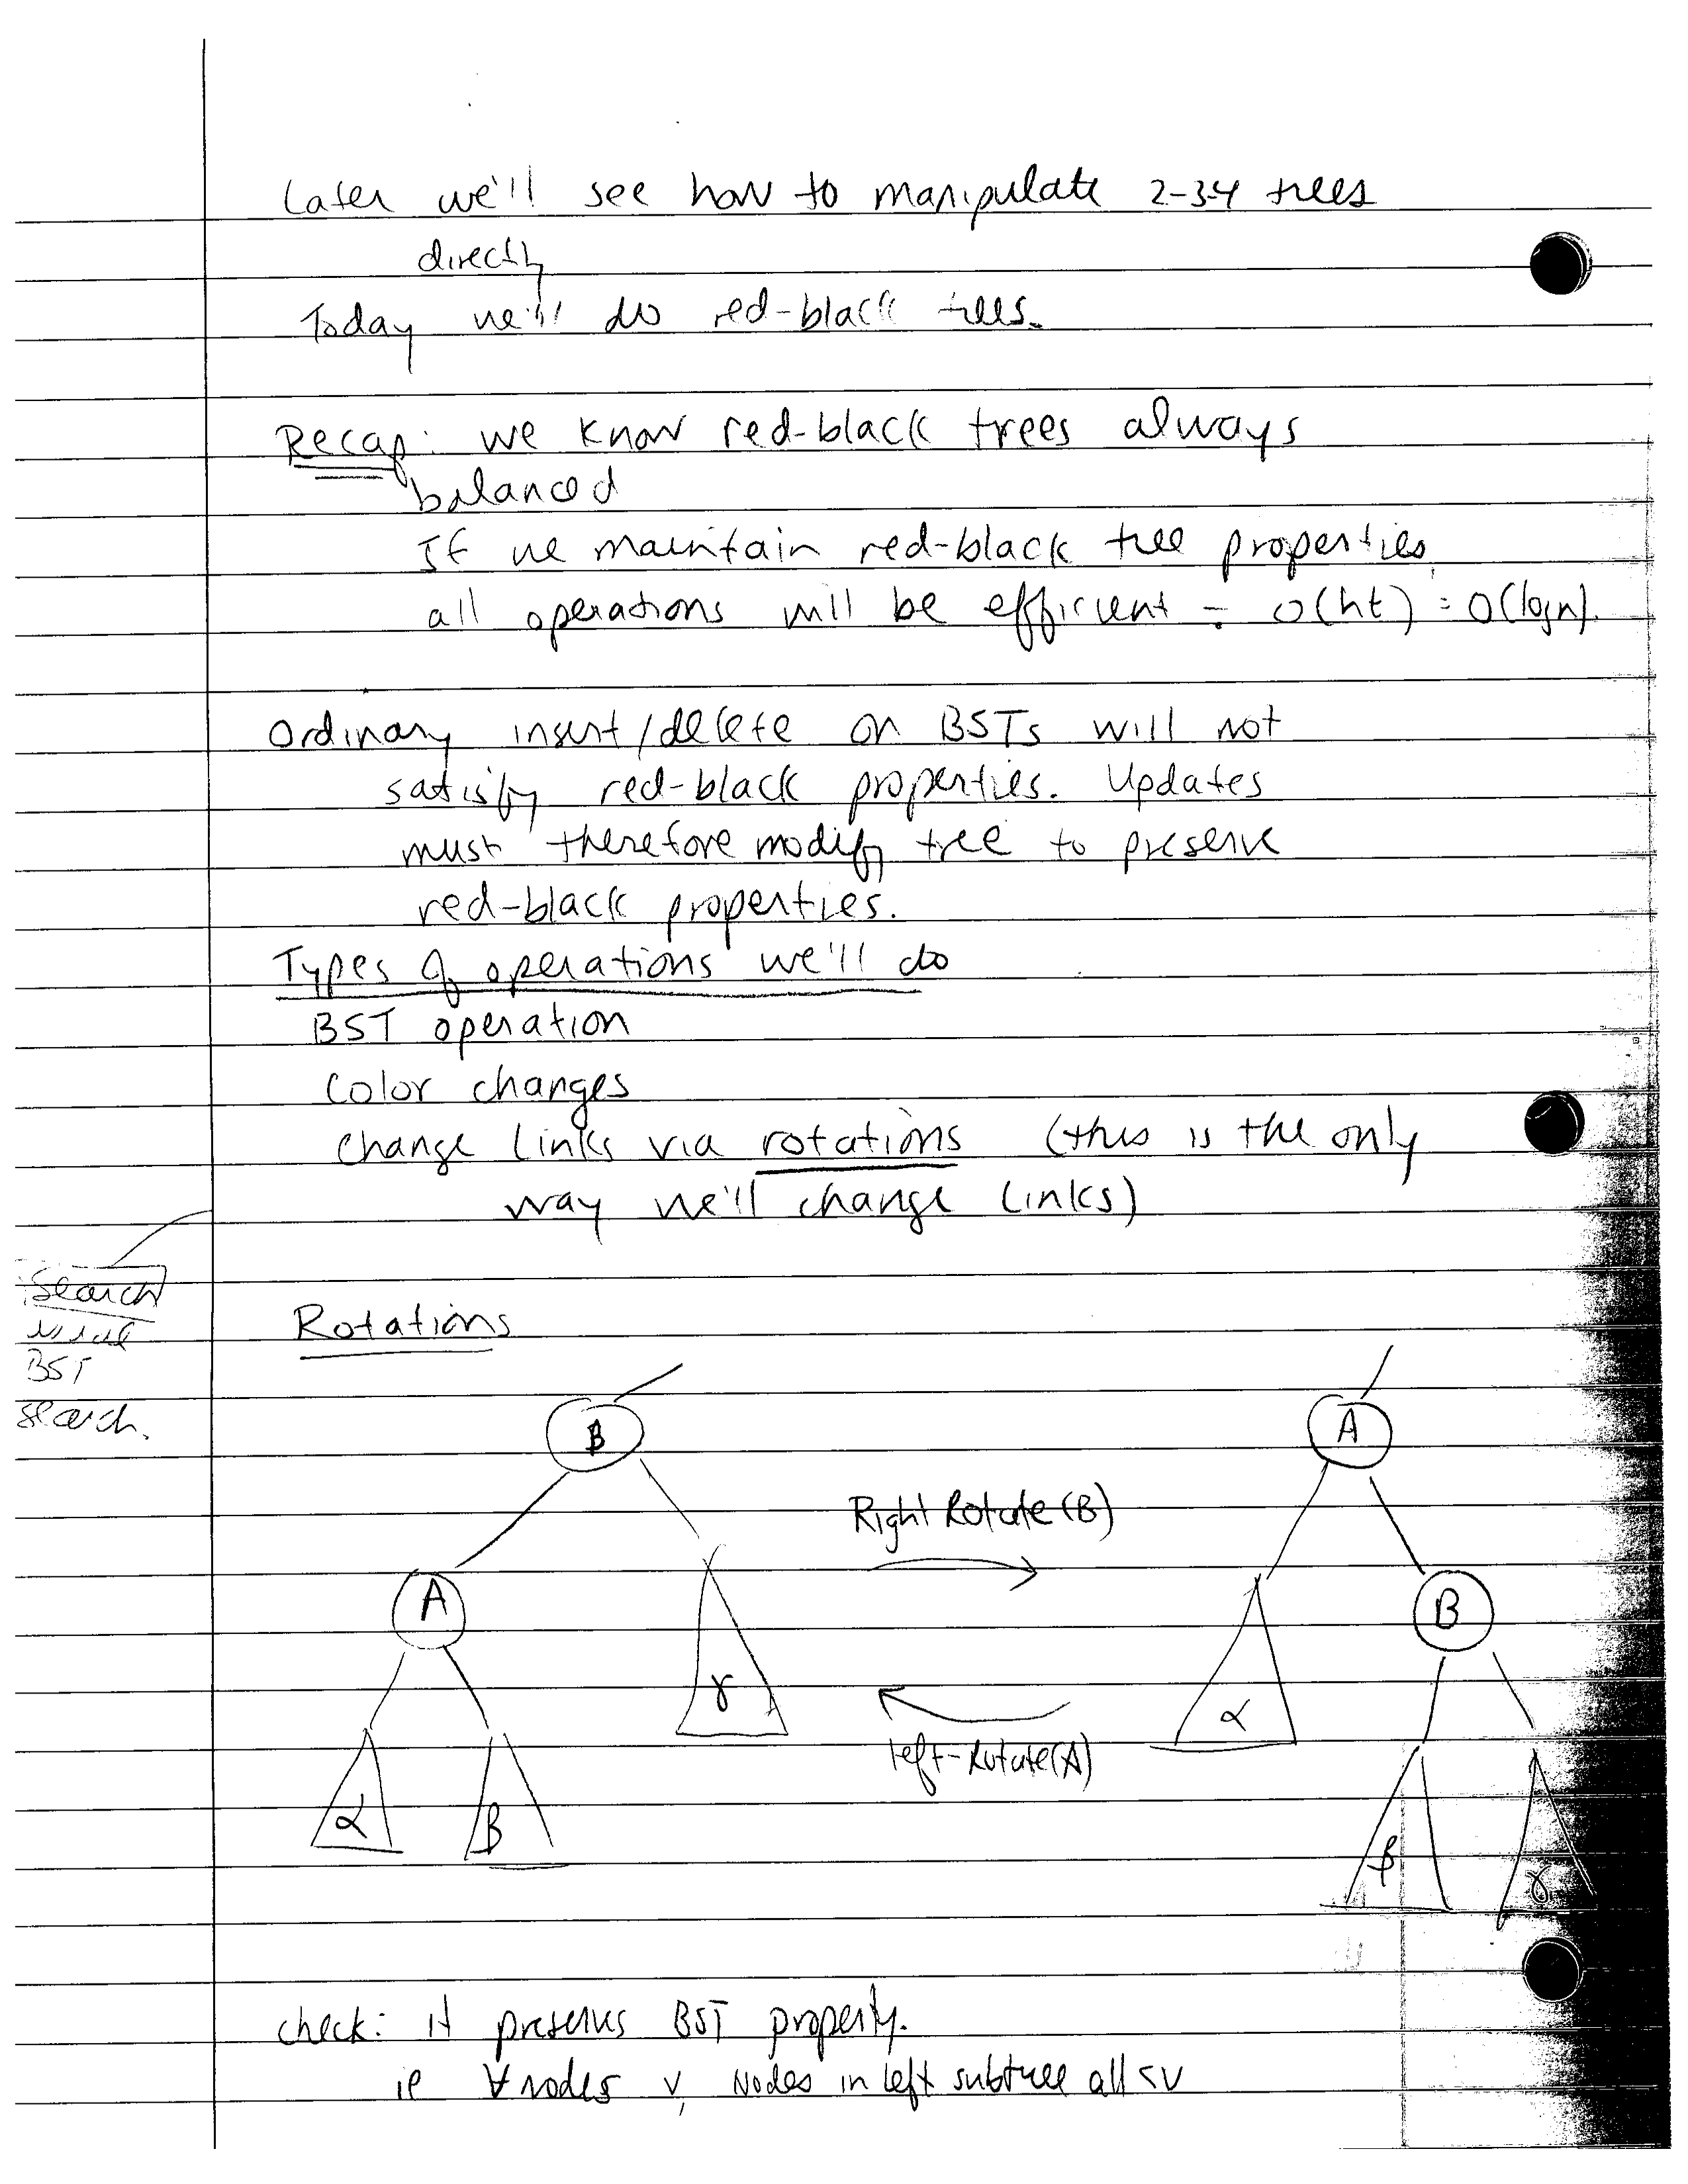 Later we'll see how to manipulate 2-3-4 trees
directly
Today we'll do red-black trees.
Recap: we know red-black trees always
balanced
If we maintain red-black tree properties,
all operations will be efficient = O(ht) = O(log n).
Ordinary insert/delete on BSTs will not
satisfy red-black properties. Updates
must therefore modify tree to preserve
red-black properties.
Types of operations we'll do
BST operation
Color changes
Change links via rotations (this is the only
way we'll change links)
Search
usual
BST
search.
Rotations
B
A
Right Rotate (B)
A
B
γ
α
Left-Rotate(A)
α
β
β
γ
check: it preserves BST property.
ie ∀ nodes v, Nodes in left subtree all ≤v